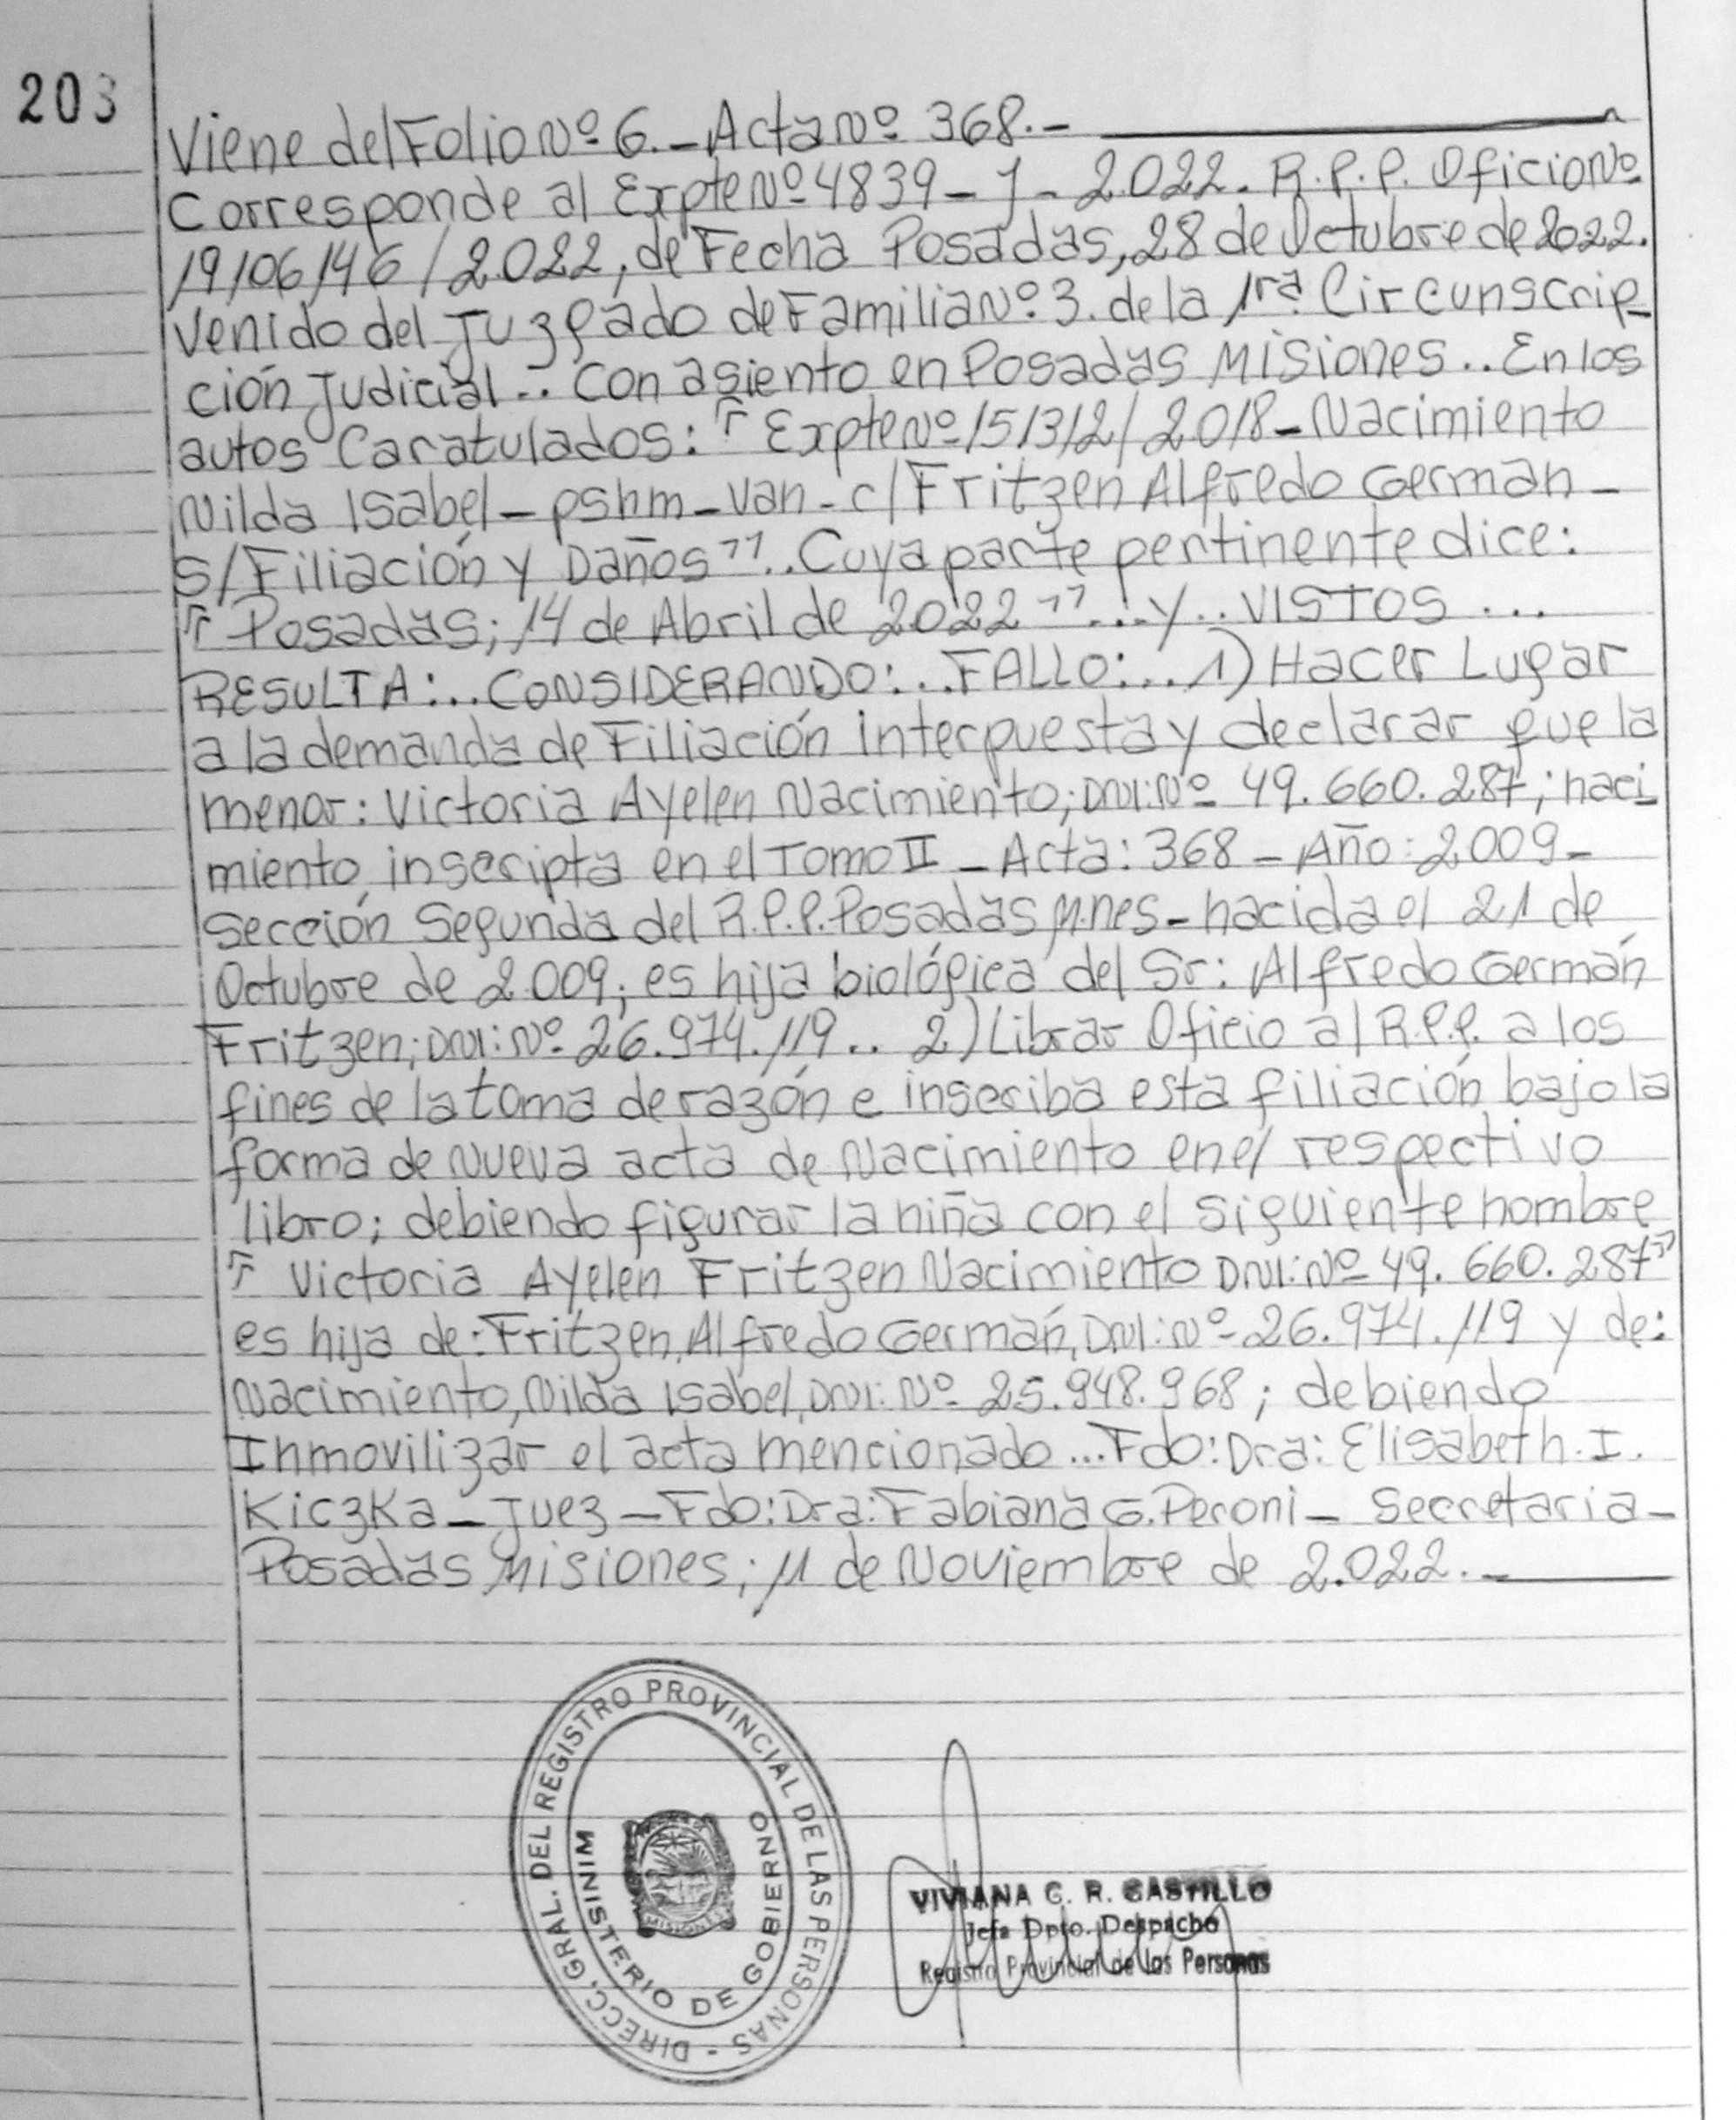 203
Viene del Folio Nº 6.- Acta Nº 368.-
Corresponde al Expte Nº 4839-J-2022. R.P.P. Oficio Nº
19106146/2022, de Fecha Posadas, 28 de Octubre de 2022.
Venido del Juzgado de Familia Nº 3. de la 1ra Circunscrip-
ción Judicial.. Con asiento en Posadas Misiones.. En los
autos Caratulados: "Expte Nº 151312/2018-Nacimiento
Nilda Isabel-pshm-Van-c/Fritzen Alfredo German-
S/Filiación y Daños".. Cuya parte pertinente dice:
"Posadas; 14 de Abril de 2022"...y..VISTOS...
RESULTA:...CONSIDERANDO:...FALLO:...1) Hacer Lugar
a la demanda de Filiación interpuesta y declarar que la
menor: Victoria Ayelen Nacimiento; DNI: Nº 49.660.287; naci-
miento inscripta en el Tomo II - Acta: 368 - Año: 2009-
Sección Segunda del R.P.P. Posadas Mnes-nacida el 21 de
Octubre de 2.009; es hija biológica del Sr: Alfredo Germán
Fritzen; DNI: Nº 26.974.119.. 2) Librar Oficio al R.P.P. a los
fines de la toma de razón e inscriba esta filiación bajo la
forma de Nueva acta de Nacimiento en el respectivo
libro; debiendo figurar la niña con el siguiente nombre
"Victoria Ayelén Fritzen Nacimiento DNI: Nº 49.660.287"
es hija de: Fritzen, Alfredo Germán, DNI: Nº 26.974.119 y de:
Nacimiento, Nilda Isabel, DNI: Nº 25.948.968; debiendo
Inmovilizar el acta mencionado...Fdo: Dra: Elisabeth. I.
Kiczka-Juez-Fdo: Dra: Fabiana G. Peroni-Secretaria-
Posadas Misiones; 11 de Noviembre de 2.022.-
DIRECC. GRAL. DEL REGISTRO PROVINCIAL DE LAS PERSONAS -
MINISTERIO DE GOBIERNO
MISIONES
VIVIANA C. R. CASTILLO
Jefa Dpto. Despacho
Registro Provincial de las Personas